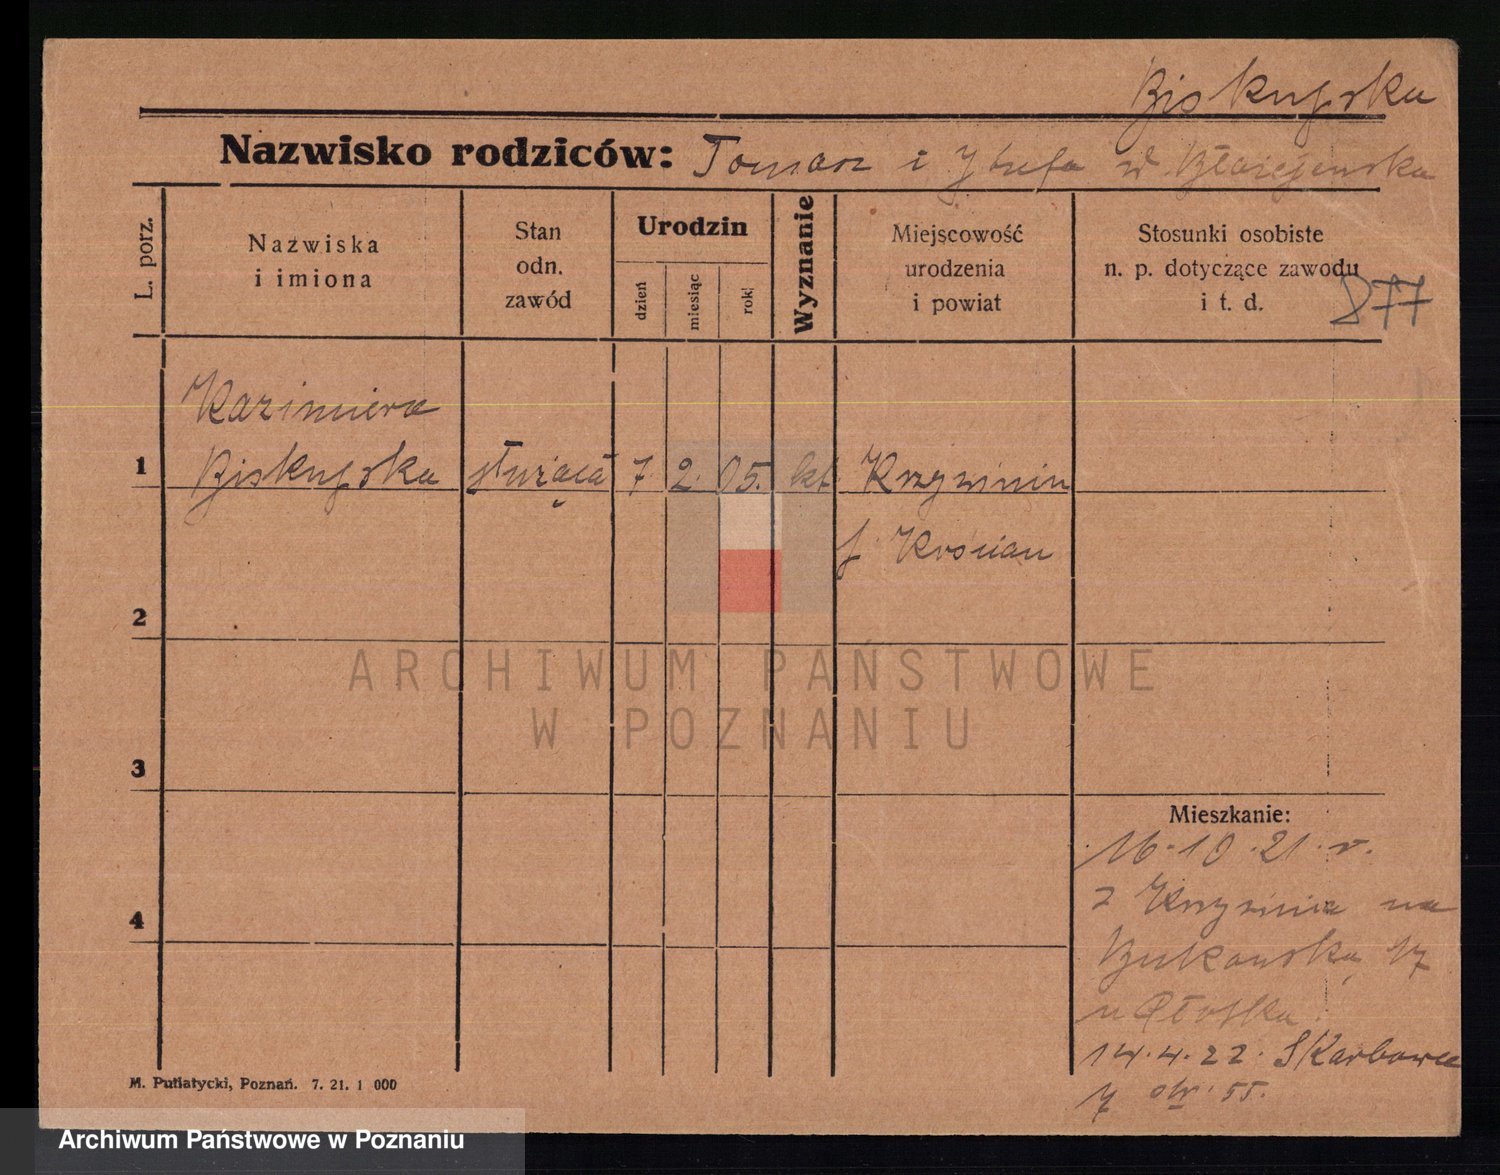 Biskupska
Nazwisko rodziców: Tomasz i Józefa z d. Błażejewska
L. porz.
Nazwiska
i imiona
Stan
odn.
zawód
Urodzin
dzień
miesiąc
rok
Wyznanie
Miejscowość
urodzenia
i powiat
Stosunki osobiste
n. p. dotyczące zawodu
i t. d.
877
Kazimiera
1 Biskupska służąca 7 2. 05. kt. Krzywiniu
p. Kościan
2
3
4
Mieszkanie:
16.10.21. r.
z Krzywinia na
Bukowska 17
u
14.4.22. Skarbowa
7 str. 55.
M. Putiatycki, Poznań. 7. 21. 1 000
ARCHIWUM PAŃSTWOWE
W POZNANIU
Archiwum Państwowe w Poznaniu